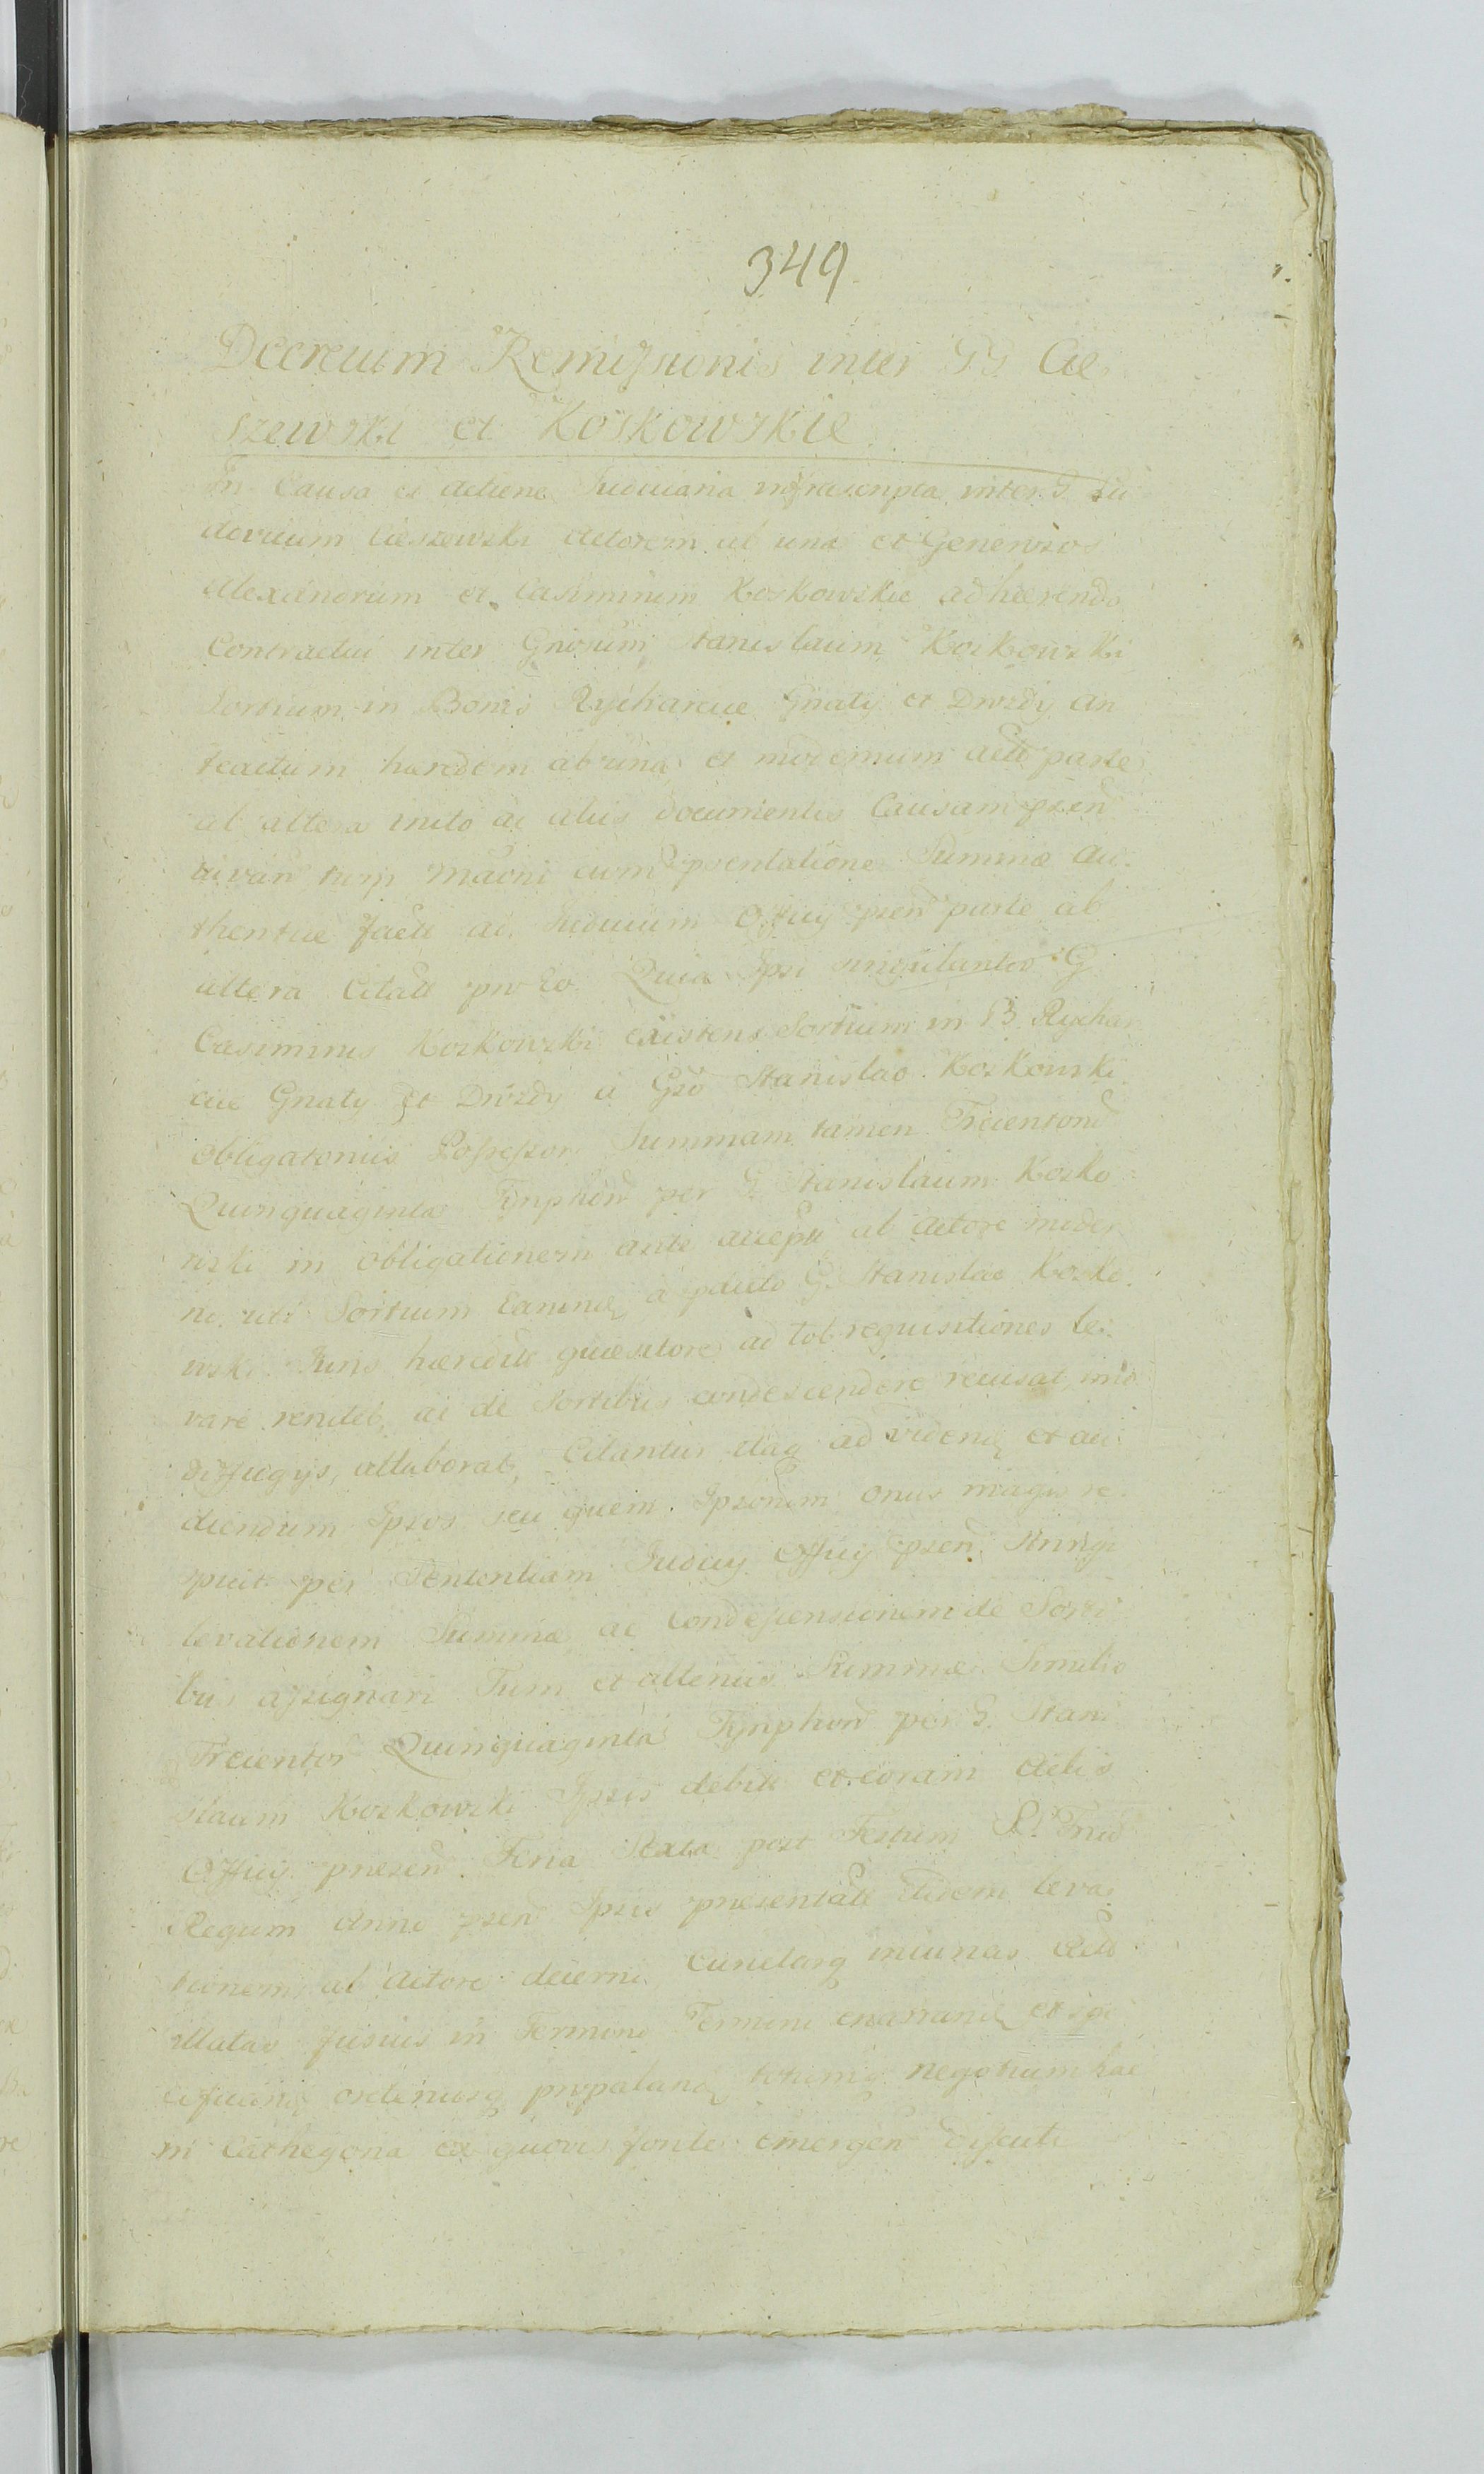 349
Decretum Remissionis inter GG Cie
szewski et Koskowskie
In Causa et Actione Judiciaria infrascripta inter G Lu
dovicum Cieszewski Actorem ab una et Generosos
Alexandrum et Casimirum Koskowskie adhaerendo
Contractui inter Gnosum Stanislaum Koskowski
Sortium in Bonis Rycharcice Gnaty et Drozdy an
teactum haeredem ab una et modernum Actō parte
ab altera inito ac aliis documentis Causam psen
cum psentatione Summae Au
thentice facta ad Judicium Officij psen parte ab
altera Citatt pro eo Quia Ipsi singulariter G
Casimirus Koskowski existens Sortium in B Rychar
cice Gnaty et Drozdy a Gso Stanislao Koskowski
obligatorius Possessor Summam tamen Trecentorum
Quinquaginta Tynphon per G Stanislaum Kosko
wski in obligationem ante accepta ab Actore moder
no uti Sortium earund a G. Stanislao Kosko
wski Juris haereditt quaesitore ad tot requisitiones le
vare renitet, ac de Sortibus condescendere recusat imo
diffugijs allaborat, Citantur itaq ad videnḍ et au
diendum Ipsos seu quem Ipsorum onus magis re
spicit per Sententiam Judicij Officij psen Stringi
levationem Summae ac Condescensionem de Sorti
bus assignari Tum et alterius Summae Similis
Trecentor Quinquaginta Tynphon per G. Stani
slaum Koskowski Ipsis debitt et coram Actis
Officij praesen Feria Sexta post Festum SS Triū
Regum Anni psen Ipsis praesentatt itidem leva
tionem ab Actore decerni Cunctasq
illatas fusius in Termino Termini enarrand et spe
cificand ostenusq propaland totumq negotium hac
in Cathegoria ex quovis fonte emergen discuti